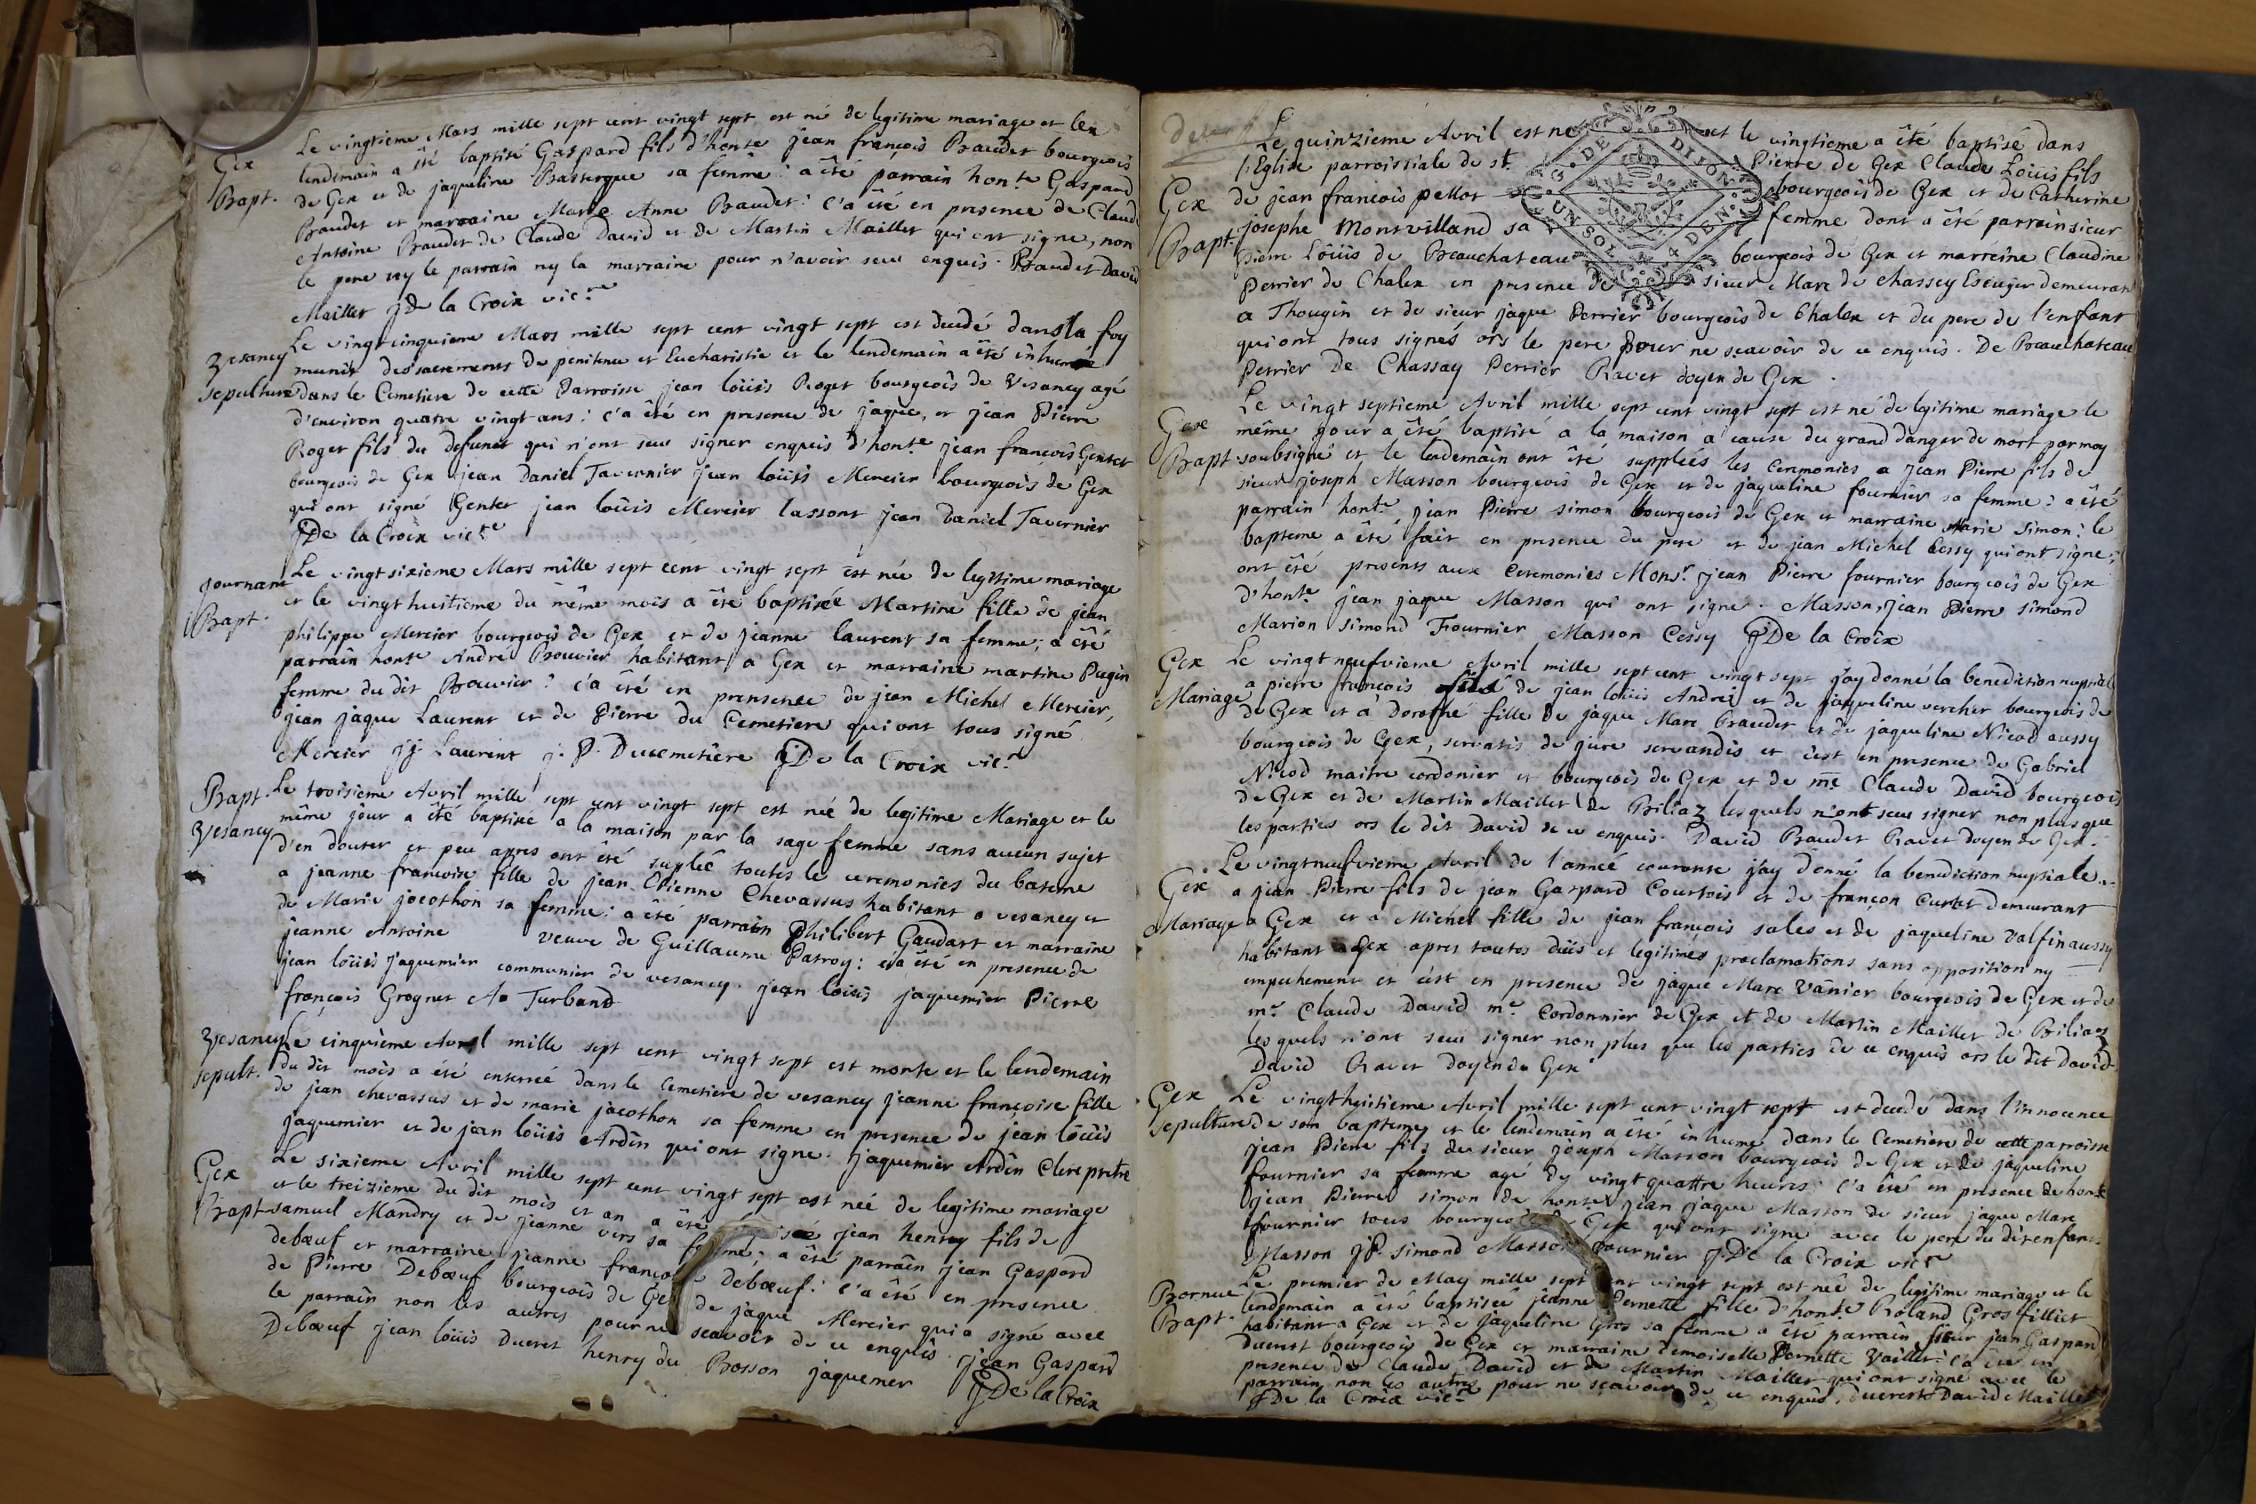 Gex
Bapt.
Le vingtieme Mars mille sept cent vingt sept est né de legitime mariage et le
lendemain a été baptisé Gaspard fils d'honte jean françois Baudet bourgeois
de Gex et de jaqueline sa femme: a été parrain honte Gaspard
Baudet et marraine Marie Anne Baudet: c'a été en presence de Claude
Antoine Baudet de Claude David et de Martin Maillet qui ont signe, non
le pere ny le parrain ny la marraine pour n'avoir seu enquis. Baudet David
Maillet JDe la Croix vicre
Vesancy
sepulture
Le vingt cinquieme Mars mille sept cent vingt sept est decedé dans la foy
munit des sacrements de penitence et Eucharistie et le lendemain a été inhumé
dans le Cemetiere de cette Parroisse jean loüis Roget bourgeois de Vesancy agé
d'environ quatre vingt ans: c'a été en presence de jaque, et jean Pierre
Roget fils du defunct qui n'ont seu signer enquis d'honte jean françois Gentet
bourgeois de Gex jean Daniel Tavernier jean loüis Mercier bourgeois de Gex
qui ont signé Gentet jean loüis Mercier lassont jean Daniel Tavernier
JDe la Croix vicre
Tournant
Bapt.
Le vingt sixieme Mars mille sept cent vingt sept est née de legitime mariage
et le vingt huitieme du même mois a été baptisée Martine fille de jean
philippe Mercier bourgeois de Gex et de jeanne laurent sa femme; a été
parrain honte André Bouvier habitant a Gex et marraine martine Pugin
femme du dit Bouvier: c'a été en prensence de jean Michel Mercier,
jean jaque Laurent et de Pierre du Cemetiere qui ont tous signé
Mercier JJ Laurent j. P. Ducemetiere JDe la Croix vicr
Bapt.
Vesancy
Le troisieme Avril mille sept cent vingt sept est née de legitime Mariage et le
même jour a été baptisée a la maison par la sage femme sans aucun sujet
d'en douter et peu apres ont été supleé toutes le ceremonies du bateme
a jeanne francoise fille de jean Etienne Chevassus habitant a vesancy et
de Marie jacothon sa femme: a été parrain Philibert Gaudart et marraine
jeanne Antoine veuve de Guillaume Patroy: c'a été en presence de
jean loüis jaquemier communier de vesancy. jean loüis jaquemier Pierre
françois Grognet Turband
Vesancy
sepult.
Le cinquieme Avril mille sept cent vingt sept est morte et le lendemain
du dit mois a été enterreé dans le Cemetiere de vesancy jeanne françoise fille
de jean chevassus et de marie jacothon sa femme en presence de jean loüis
jaquemier et de jean loüis Ardin qui ont signe. jaquemier Ardin Clerc pretre
Gex
Bapt
Le sixieme Avril mille sept cent vingt sept est née de legitime mariage
et le treizieme du dit mois et an a été jean henry fils de
samuel Mandry et de jeanne vers sa femme; a été parrain jean Gaspard
debœuf et marraine jeanne debœuf: c'a été en presence
de Pierre Debœuf bourgeois de Gex de jaque Mercier qui a signé avec
le parrain non les autres pour ne seavoir de ce enquis jean Gaspard
Debœuf jean loüis Ducret henry du Bosson jaquemer JDe la Croix
Gex
Bapt.
Le quinzieme Avril est né et le vingtieme a été baptisé dans
l'Eglise parroissiale de st. Pierre de Gex Claude Loüis fils
de jean françois pellot bourgeois de Gex et de Catherine
josephe Montvilland sa femme dont a été parrain sieur
Pierre Loüis de Beauchateau bourgeois de Gex et marreine Claudine
Perrier de Chalex en presence de sieur Marc de Chassey Escuyer demeurant
a Thougin et de sieur jaque Perrier bourgeois de Chalex et du pere de l'enfant
qui ont tous signés ors le pere pour ne scavoir de ce enquis. De Beauchateau
Perrier De Chassay Perrier Ravet doyen de Gex.
G. DE DIJON
UN SOL 4 DEN
Gex
Bapt.
Le vingt septieme Avril mille sept cent vingt sept est né de legitime mariage le
même jour a été baptisé a la maison a cause du grand danger de mort par moy
soubsigné et le lendemain ont été suppleés les Ceremonies a jean Pierre fils de
sieur joseph Masson bourgeois de Gex et de jaqueline fournier sa femme: a été
parrain honte jean Pierre simon bourgeois de Gex et marraine Marie Simon: le
bapteme a été fait en presence du pere et de jean Michel Cessy qui ont signe;
ont été presents aux Ceremonies Monsr jean Pierre fournier bourgeois de Gex
d'honte jean jaque Masson qui ont signe. Masson, jean Pierre simond
Marion Simond Fournier Masson Cessy JDe la Croix
Gex
Mariage
Le vingt neufvieme Avril mille sept cent vingt sept j'ay donné la benediction nuptiale
a pierre françois fils de jean loüis Andrei et de jaqueline vercher bourgeois de
de Gex et a Dorothé fille de jaque Marc Baudet et de jaqueline Nicod aussy
bourgeois de Gex, servatis de jure servandis et c'est en presence de Gabriel
Nicod maitre cordonier et bourgeois de Gex et de me Claude David bourgeois
de Gex et de Martin Maillet de Biliaz lesquels n'ont seu signer non plus que
les parties ors le dit David de ce enquis. David Baudet Ravet doyen de Gex.
Gex
Mariage
Le vingt neufvieme Avril de l'anneé courante j'ay donné la benediction nuptiale
a jean Pierre fils de jean Gaspard Courtois et de françon Curtet demeurant
a Gex et a Michel fille de jean françois sales et de jaqueline Valfin aussy
habitant Gex apres toutes duës et legitimes proclamations sans opposition ny
empechement et c'est en presence de jaque Marc Vanier bourgeois de Gex et de
mr Claude David mr. Cordonnier de Gex et de Martin Maillet de Biliaz
lesquels n'ont seu signer non plus que les parties de ce enquis ors le dit David
David Ravet doyen de Gex
Gex
sepulture
Le vingt huitieme Avril mille sept cent vingt sept est decedé dans l'innocence
de son bapteme et le lendemain a été inhumé dans le Cemetiere de cette parroisse
jean Pierre fils de sieur joseph Masson bourgeois de Gex et de jaqueline
fournier sa femme agé de vingt quattre heures: c'a été en presence de honte
jean Pierre simon de honte jean jaque Masson de sieur jaque Marc
fournier tous bourgeois de Gex qui ont signé avec le pere du dit enfant.
Masson JP. simond Masson fournier J.De la Croix vicr
Bornue
Bapt.
Le premier de May mille sept cent vingt sept est neé de legitime mariage et le
lendemain a été baptiseé jeanne Pernette fille d'honte Roland Grosfilliet
habitant a Gex et de jaqueline Gros sa femme a été parrain sieur jean Gaspard
ducrest bourgeois de Gex et marraine demoiselle Pernette Vaillet: c'a été en
presence de Claude David et de Martin Maillet qui ont signé avec le
parrain non les autres pour ne scavoir de ce enquis. Ducrest David Maillet
JDe la Croix vicr